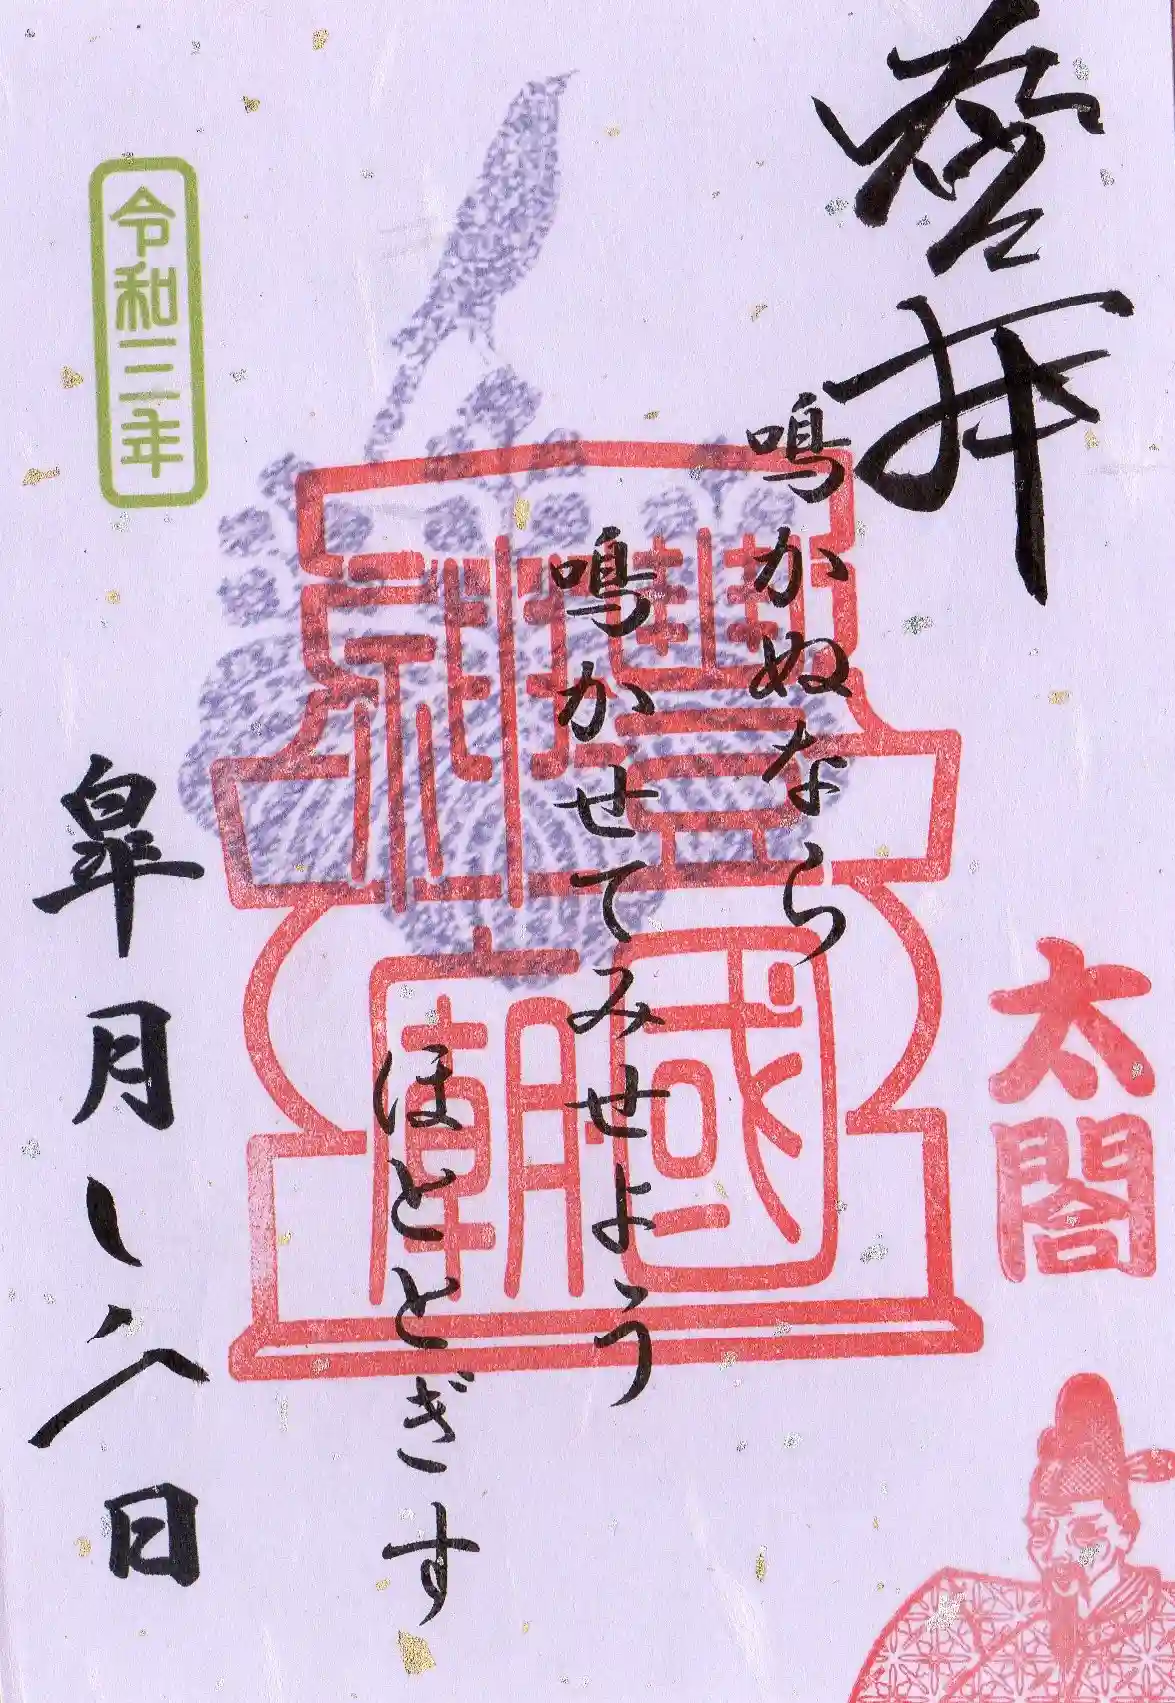 登拝
太閤
鳴かぬなら
鳴かせてみせよう
ほととぎす
豐國
神廟
令和三年
皐月十八日